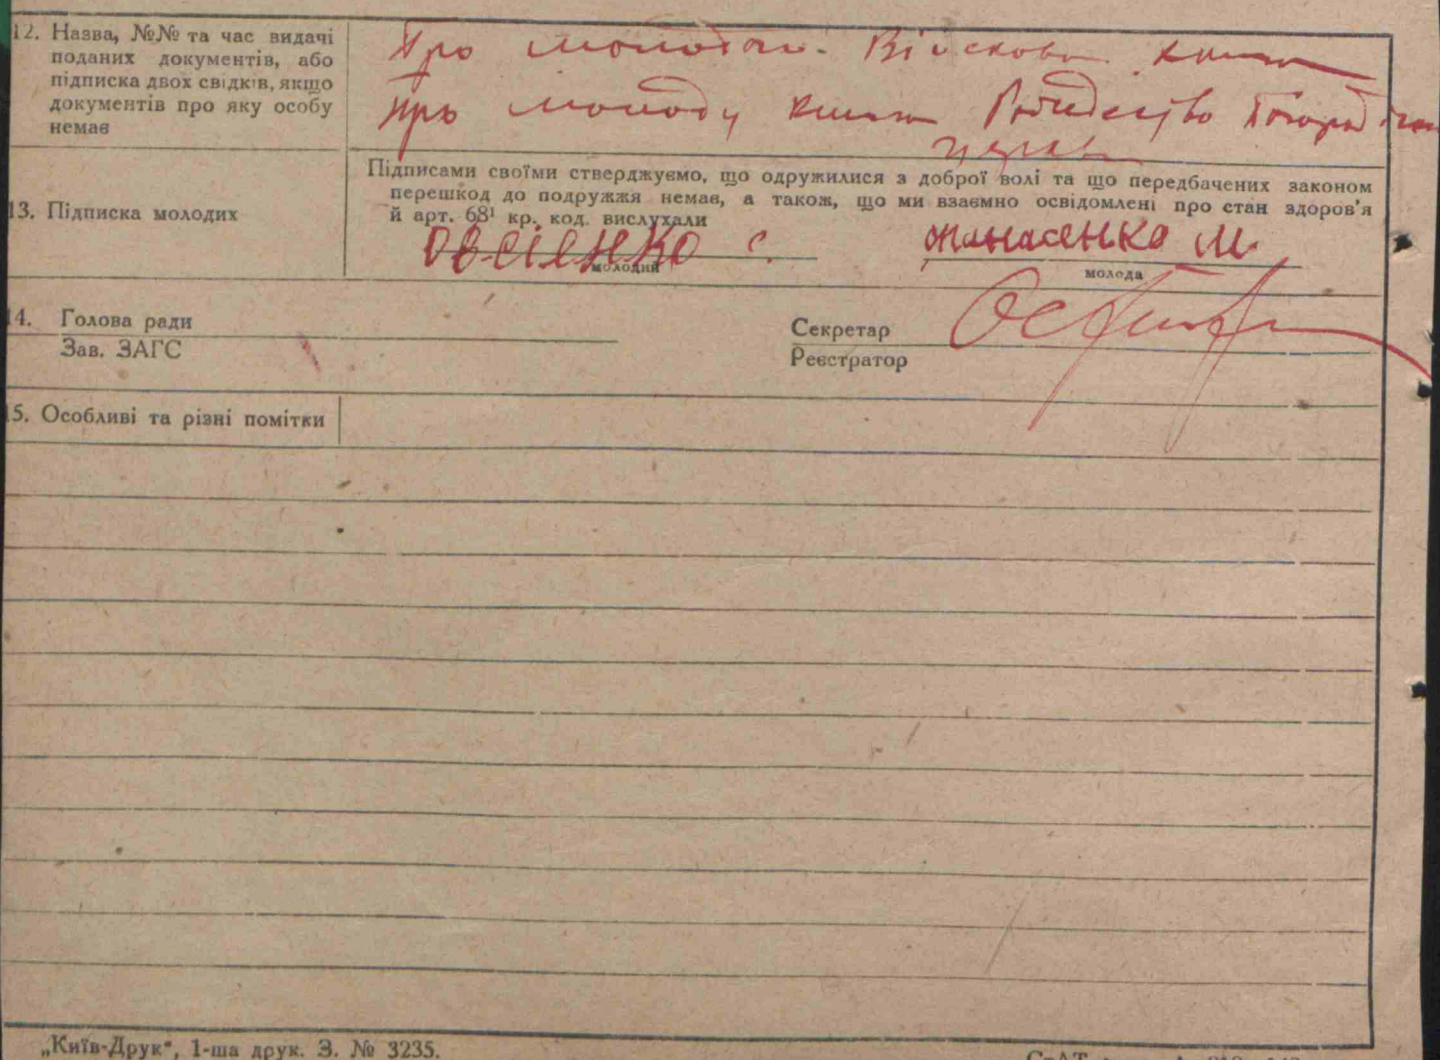 12. Назва, №№ та час видачі
поданих документів, або
підписка двох свідків, якщо
документів про яку особу
немає
Про молодого. Військова книж
про молоду книж Рождество
церкви
13. Підписка молодих
Підписами своїми стверджуємо, що одружилися з доброї волі та що передбачених законом
перешкод до подружжя немає, а також, що ми взаємно освідомлені про стан здоров'я
й арт. 68¹ кр. код. вислухали
Овсієнко С.
молодий
Панасенко М
молода
14. Голова ради
Зав. ЗАГС
Секретар
Реєстратор
15. Особливі та різні помітки
„Київ-Друк", 1-ша друк. З. № 3235.